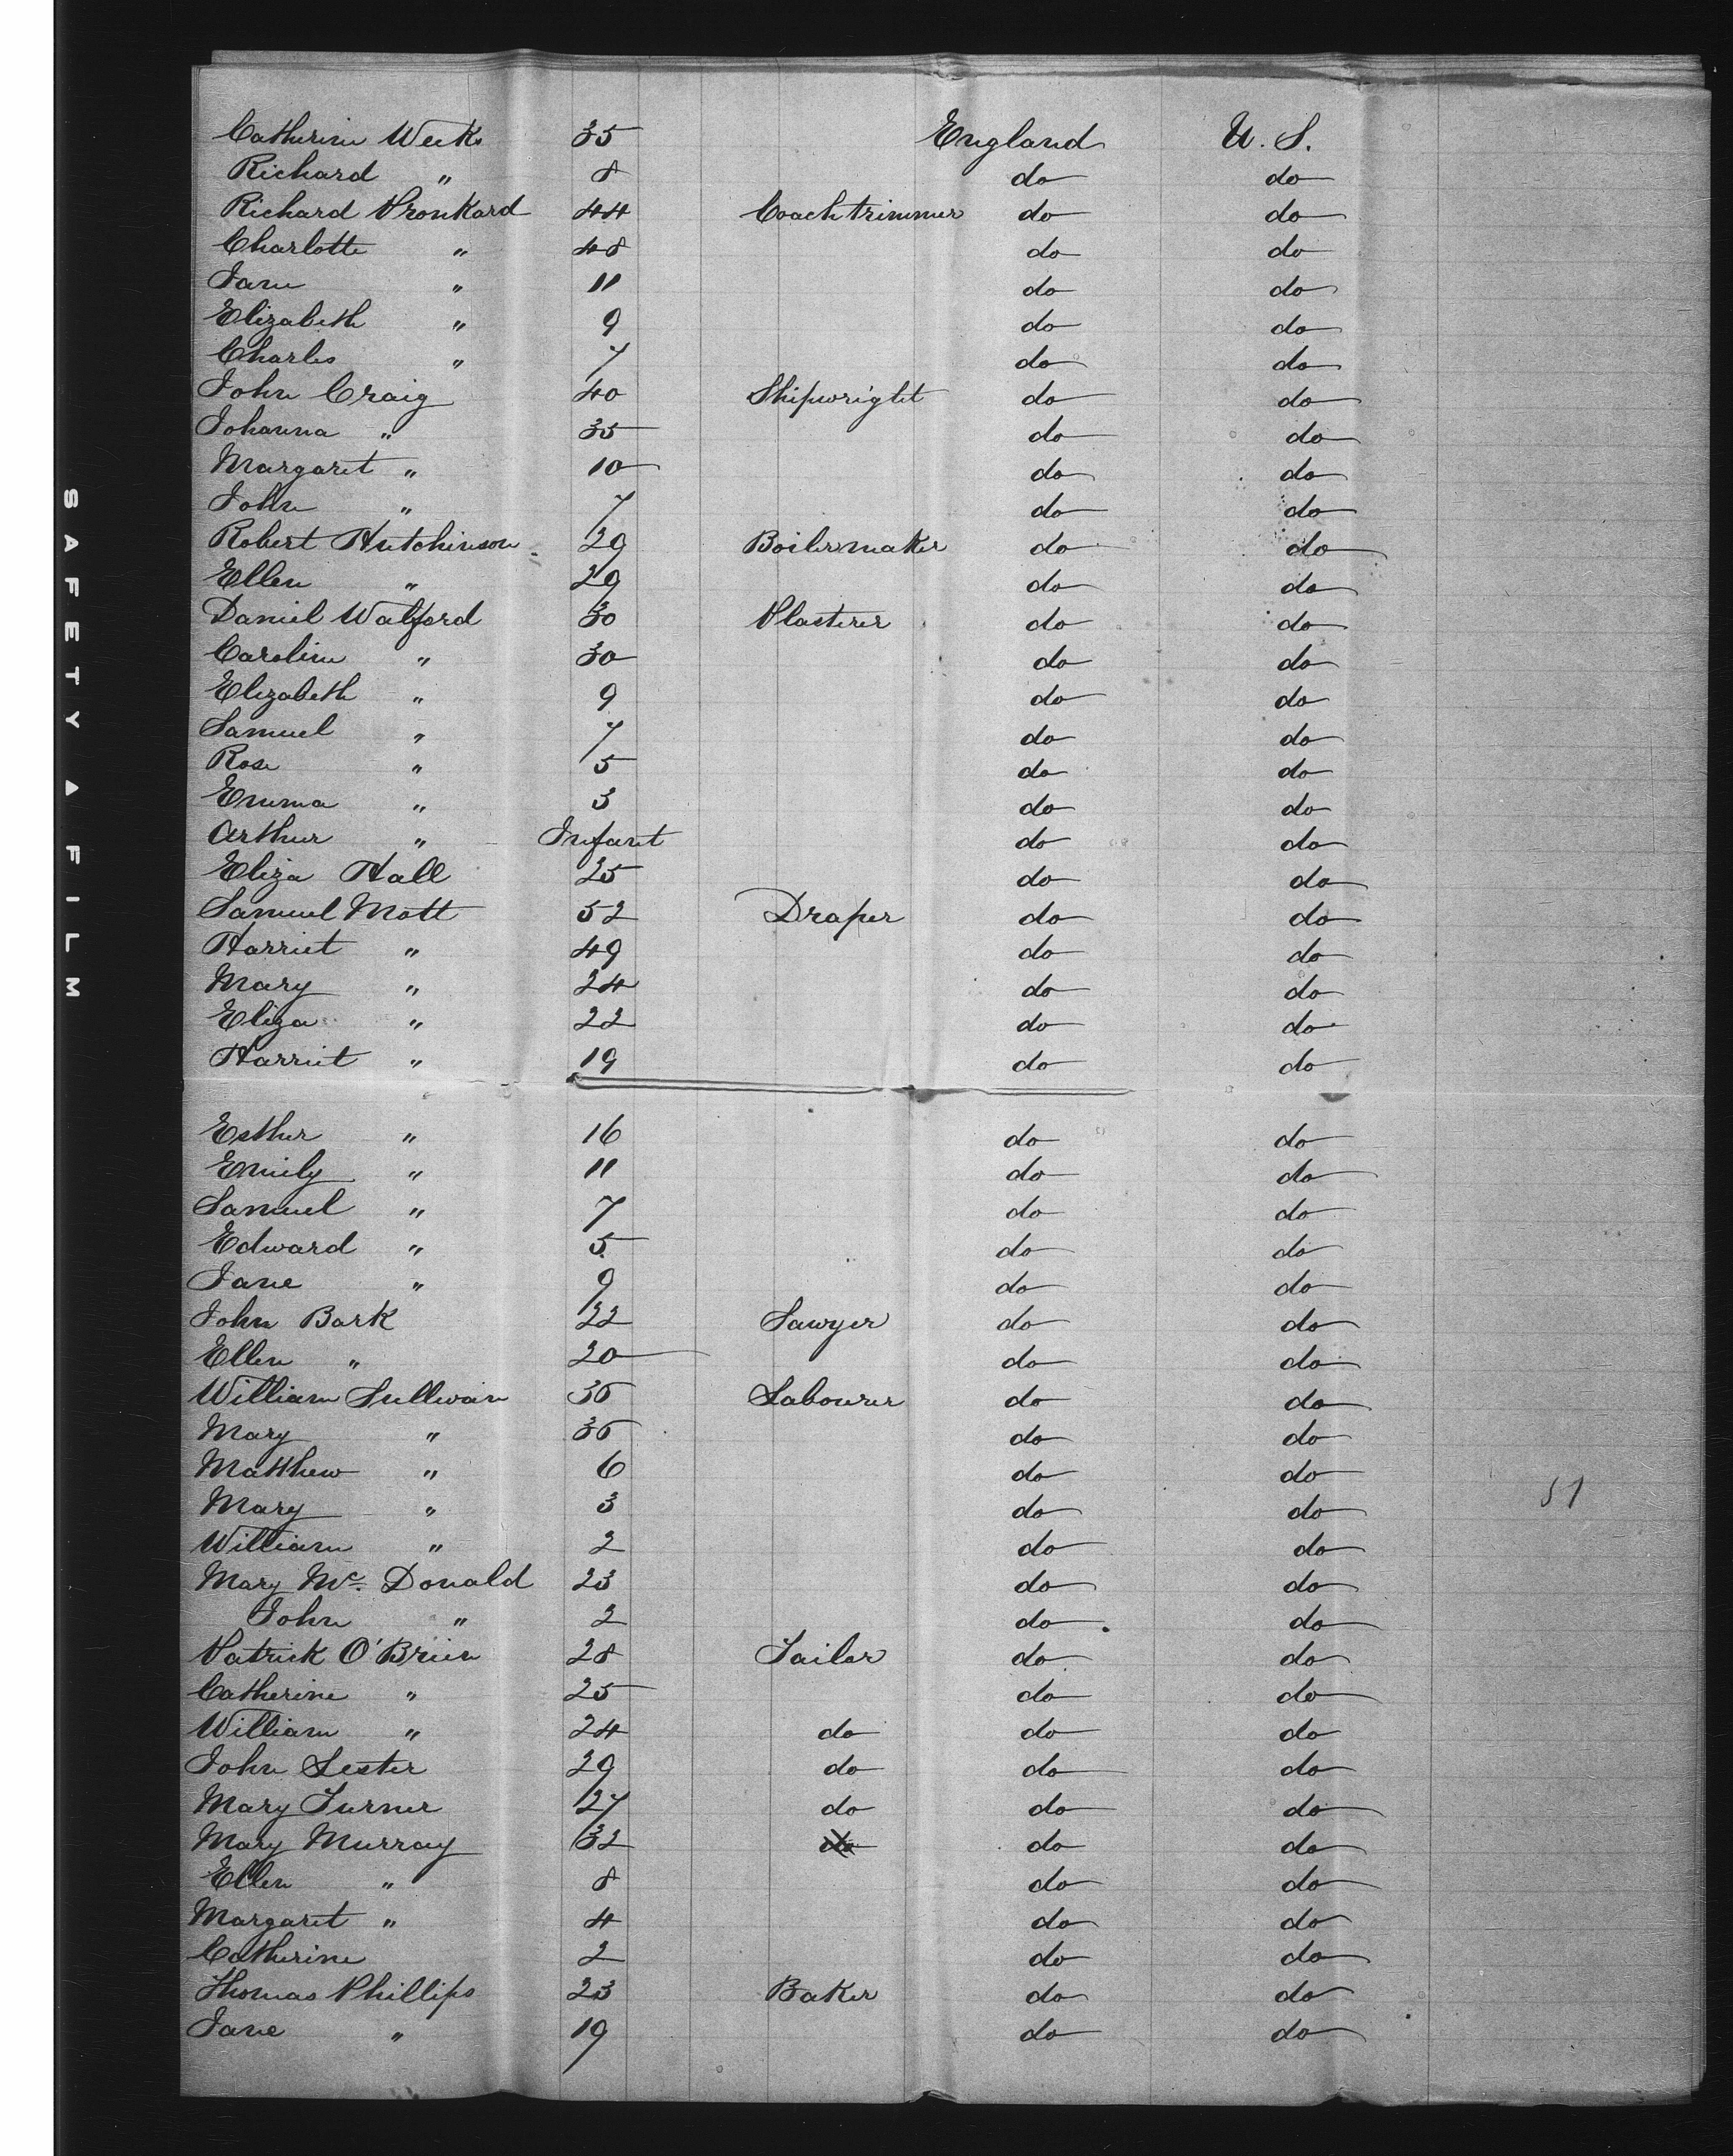 Catherine Weeks 35 England U. S.
Richard " 8 do do
Richard Pronkard 44 Coachtrimmer do do
Charlotte " 48 do do
Jane " 11 do do
Elizabeth " 9 do do
Charles " 7 do do
John Craig 40 Shipwright do do
Johanna " 35 do do
Margaret " 10 do do
John " 7 do do
Robert Hutchinson 29 Boilermaker do do
Ellen " 29 do do
Daniel Walford 30 Plasterer do do
Caroline " 30 do do
Elizabeth " 9 do do
Samuel " 7 do do
Rose " 5 do do
Emma " 3 do do
Arthur " Infant do do
Eliza Hall 25 do do
Samuel Mott 52 Draper do do
Harriet " 49 do do
Mary " 24 do do
Eliza " 22 do do
Harriet " 19 do do
Esther " 16 do do
Emily " 11 do do
Samuel " 7 do do
Edward " 5 do do
Jane " 9 do do
John Bark 22 Sawyer do do
Ellen " 20 do do
William Sullivan 36 Labourer do do
Mary " 36 do do
Matthew " 6 do do
Mary " 3 do do
51
William " 2 do do
Mary Mc. Donald 23 do do
John " 2 do do
Patrick O'Brien 28 Tailor do do
Catherine " 25 do do
William " 24 do do do
John Lester 29 do do do
Mary Turner 27 do do do
Mary Murray 32 do do do
Ellen " 8 do do
Margaret " 4 do do
Catherine 2 do do
Thomas Phillips 23 Baker do do
Jane " 19 do do
SAFETY A FILM